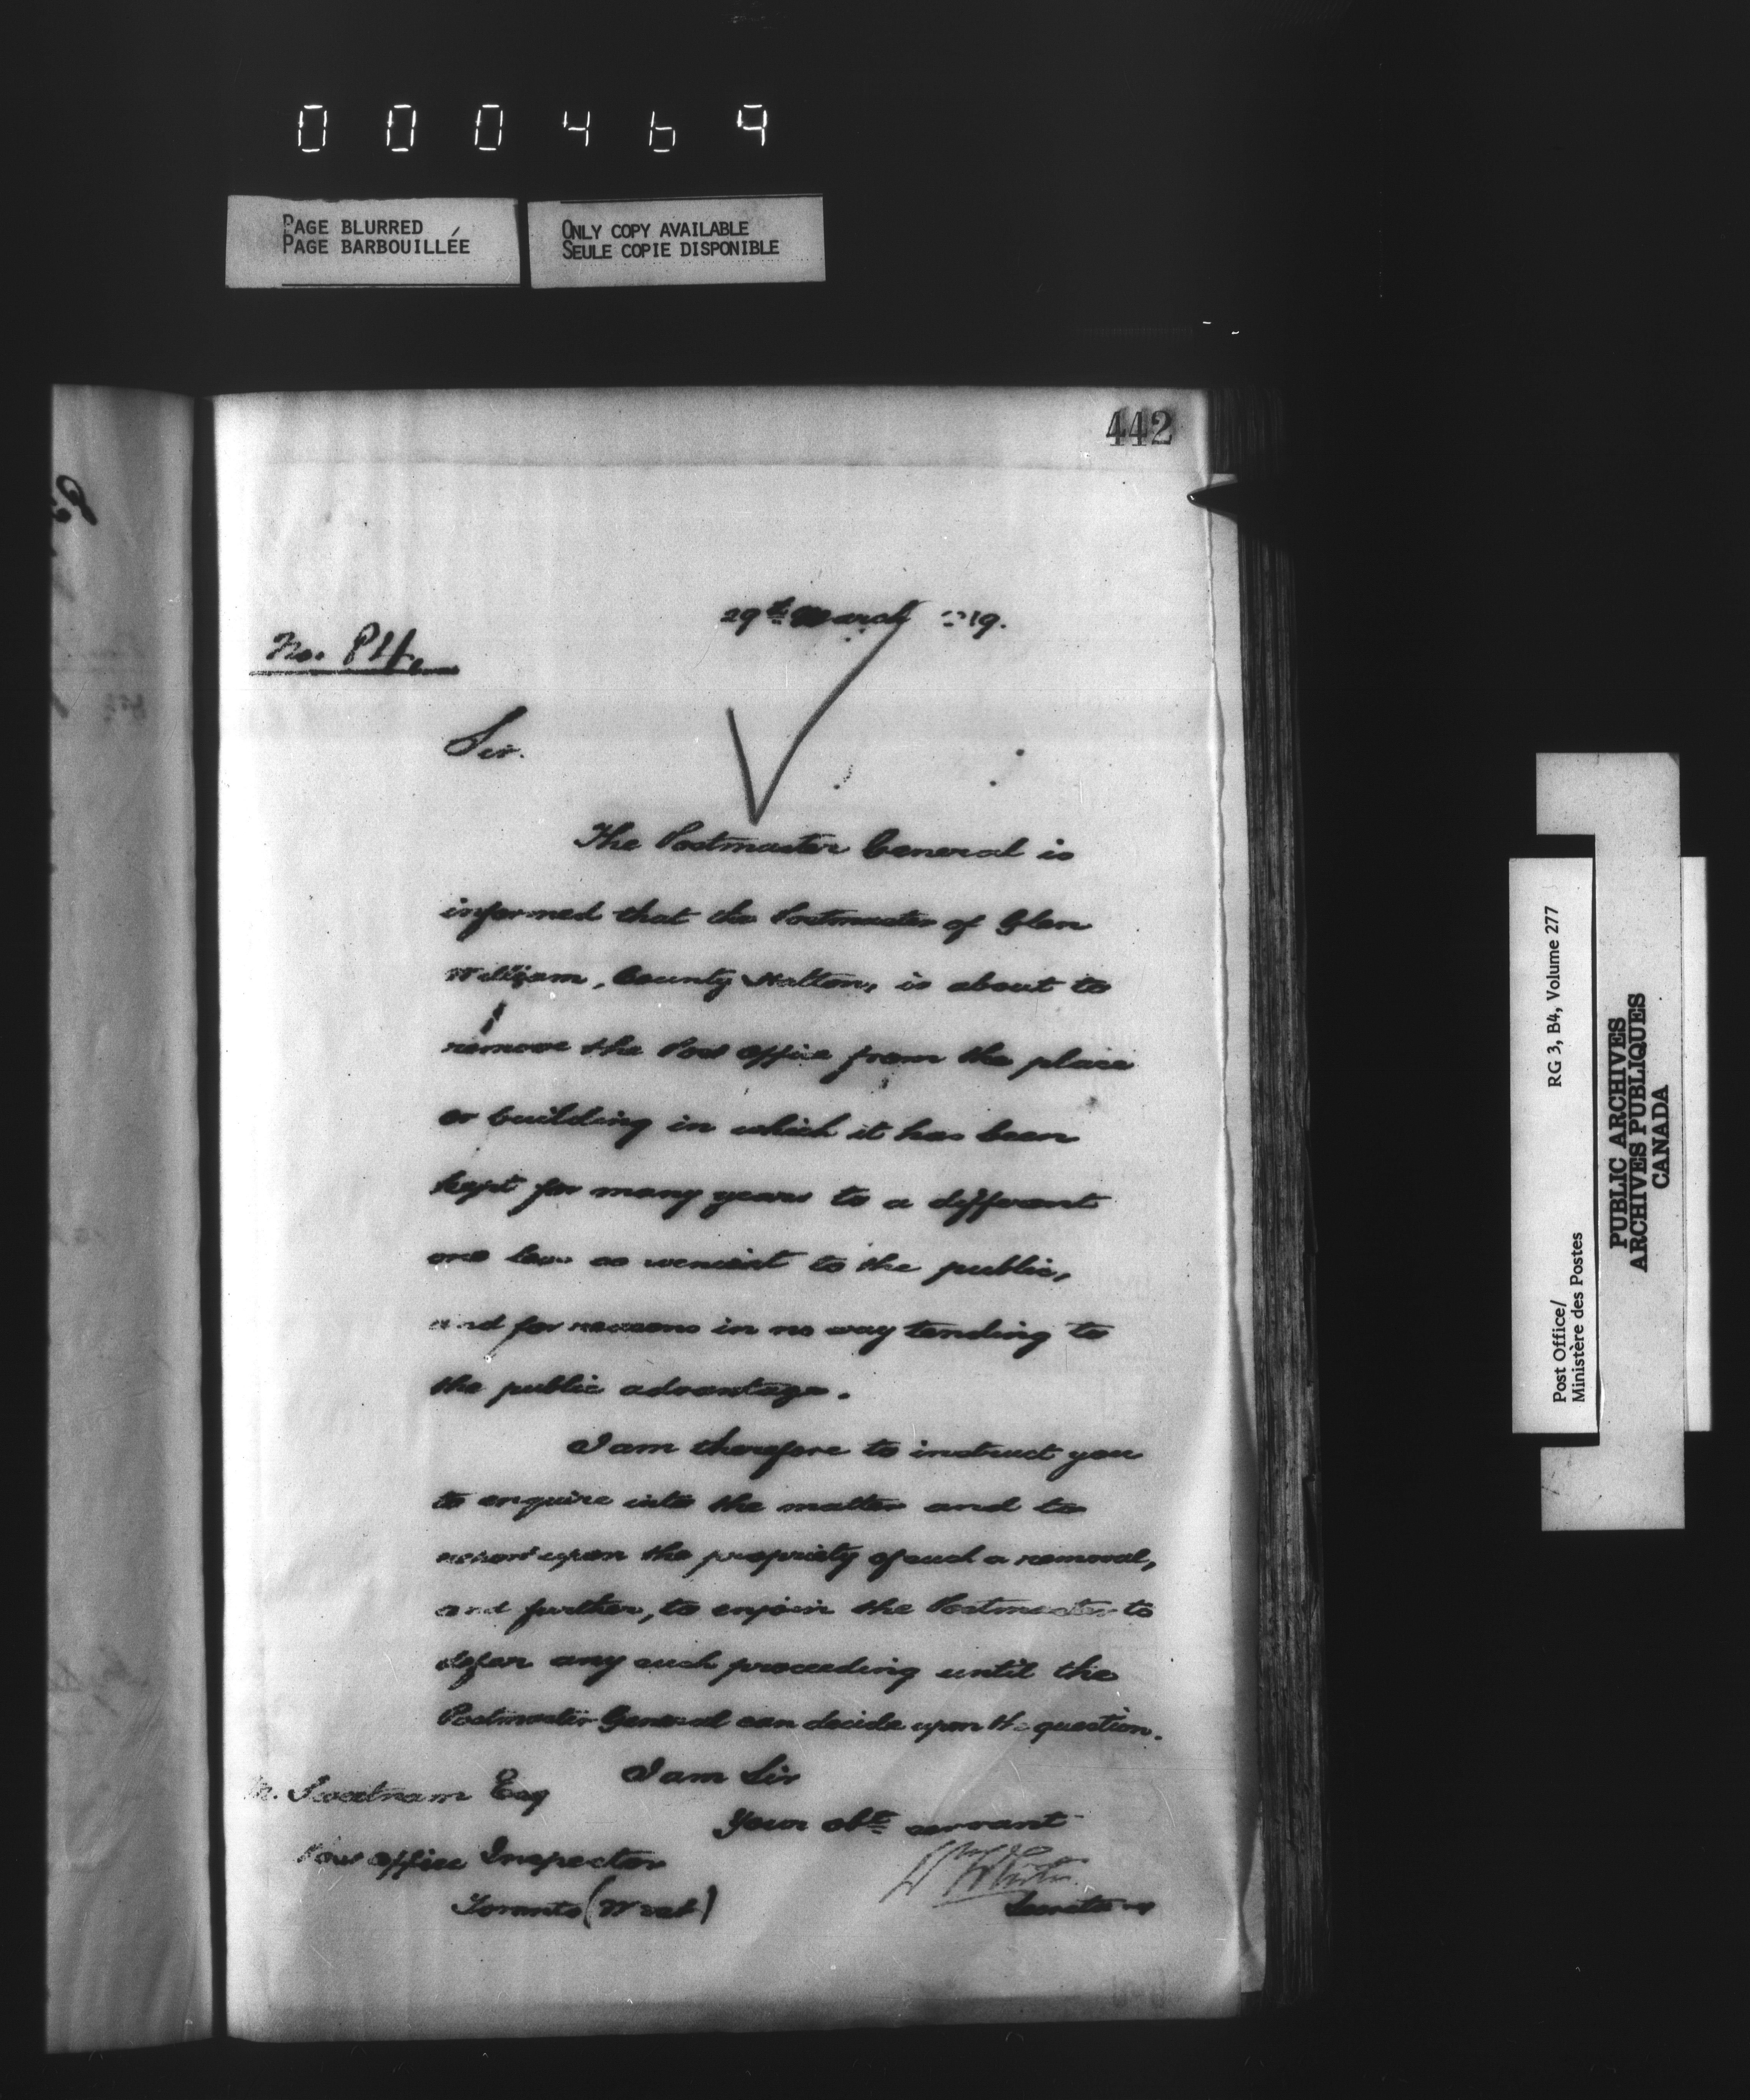 000469
PAGE BLURRED
PAGE BARBOUILLÉE
ONLY COPY AVAILABLE
SEULE COPIE DISPONIBLE
442
29th March 19.
No.
Sir.
The Postmaster General is
informed that the Postmaster of Glen
William, County Halton, is about to
remove the Post Office from the place
or building in which it has been
kept for many years to a different
one less convenient to the public,
and for reasons in no way tending to
the public advantage.
I am therefore to instruct you
to enquire into the matter and to
report upon the propriety of such a removal,
and further, to enjoin the Postmaster to
defer any such proceeding until the
Postmaster General can decide upon the question.
I am Sir
Your obt servant
M. Sweetnam Esq
Post Office Inspector
Toronto (West)
Secretary
RG 3, B4, Volume 277
Post Office/
Ministère des Postes
PUBLIC ARCHIVES
ARCHIVES PUBLIQUES
CANADA